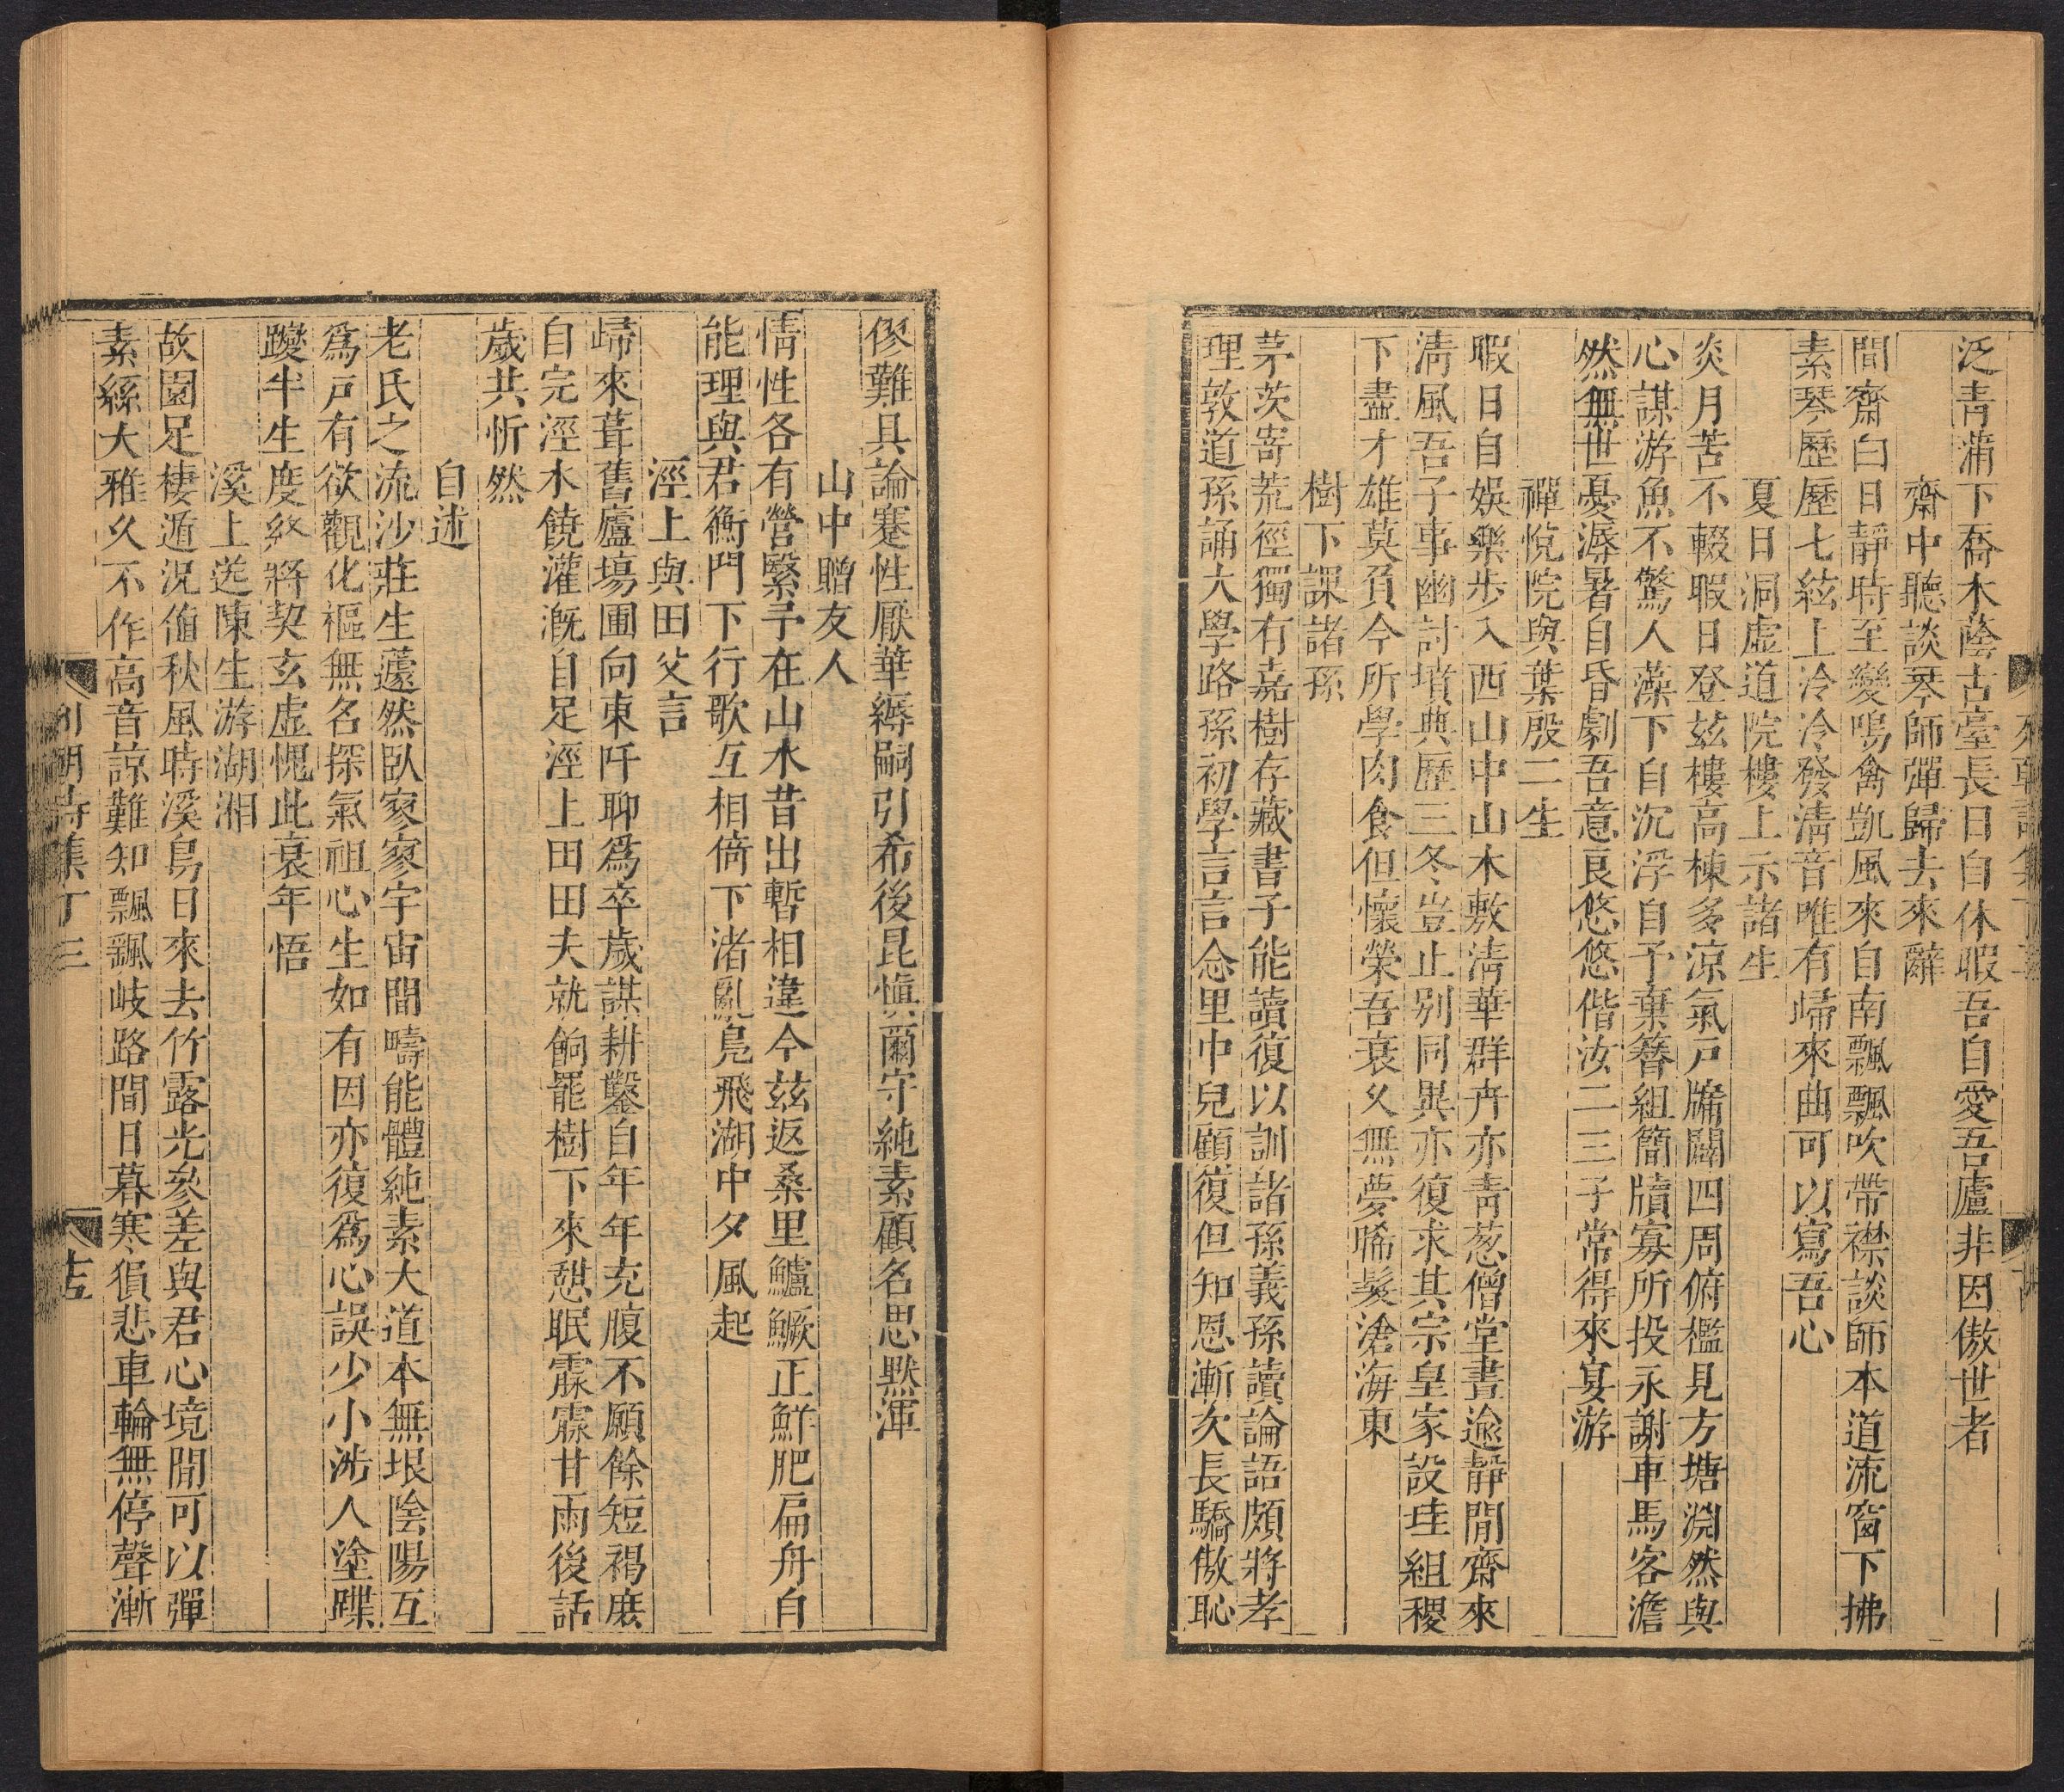 泛青蒲下喬木蔭古臺長日自休暇吾自愛吾廬非因傲世者
齋中聽談琴師彈歸去來辭
間齋白日靜時至變鳴禽凱風來自南飄飄吹帶襟談師本道流窗下拂
素琴歷歷七絃上泠泠發清音唯有歸來曲可以寫吾心
夏日洞虛道院樓上示諸生
炎月苦不輟暇日登玆樓高棟多涼氣戸牖闢四周俯檻見方塘淵然與
心謀游魚不驚人藻下自沉浮自予棄簪組簡牘寡所投永謝車馬客澹
然無世憂溽暑自昏劇吾意良悠悠偕汝二三子常得來宴游
禪悅院與葉殷二生
暇日自娛樂步入西山中山木敷清華群卉亦青葱僧堂晝逾靜間齋來
清風吾子事幽討墳典歷三冬豈止别同異亦復求其宗皇家設珪組稷
下盡才雄莫負今所學肉食但懷榮吾衰久無夢晞髮滄海東
樹下課諸孫
茅茨寄荒徑獨有嘉樹存藏書子能讀復以訓諸孫義孫讀論語頗將孝
理敦道孫誦大學路孫初學言言念里中兒顧復但知恩漸次長驕傲恥
僇難具論蹇性厭華縟嗣引希後昆愼爾守純素顧名思默渾
山中贈友人
情性各有營繄子在山水昔出暫相違今玆返桑里鱸鱖正鮮肥扁舟自
能理與君衡門下行歌互相倚下渚亂鳧飛湖中夕風起
涇上與田父言
歸來葺舊廬塲圃向東阡聊爲卒歲謀耕鑿自年年充腹不願餘短褐庶
自完涇水饒灌漑自足涇上田田夫就餉罷樹下來憩眠霡霂甘雨後話
歲共忻然
自述
老氏之流沙莊生蘧然臥寥寥宇宙間疇能體純素大道本無垠陰陽互
爲戸有欲觀化樞無名探氣祖心生如有因亦復爲心誤少小涉人塗蹀
躞半生度終將契玄虛愧此衰年悟
溪上送陳生游湖湘
故園足棲遁況值秋風時溪鳥日來去竹露光參差與君心境間可以彈
素絲大雅久不作高音諒難知飄飄岐路間日暮寒猿悲車輪無停聲漸
列朝詩集丁三